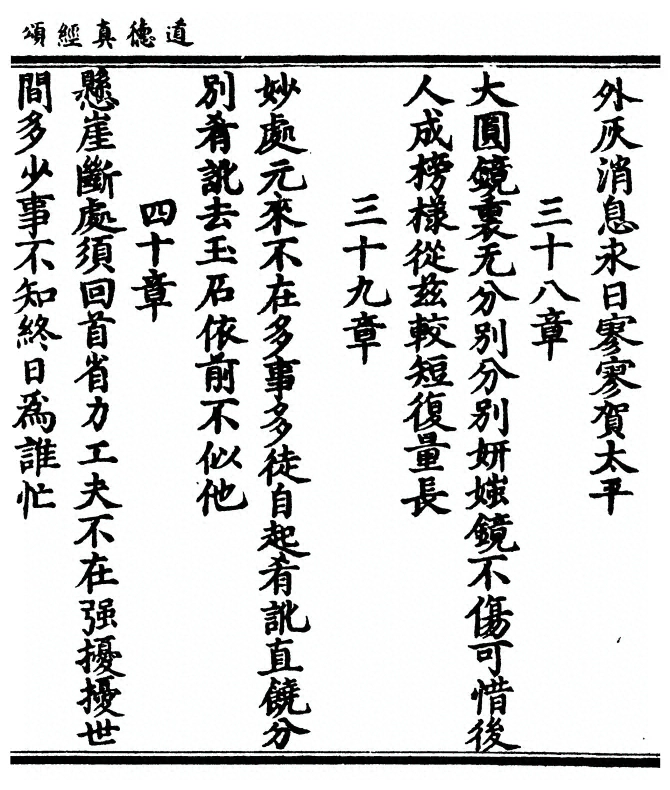 道德真經頌
外灰消息永日寥寥賀太平
三十八章
大圓鏡裏无分別分別妍媸鏡不傷可惜後
人成榜樣從茲較短復量長
三十九章
妙處元來不在多事多徒自起肴訛直饒分
別肴訛去玉石依前不似他
四十章
懸崖斷處須回首省力工夫不在强擾擾世
間多少事不知終日爲誰忙